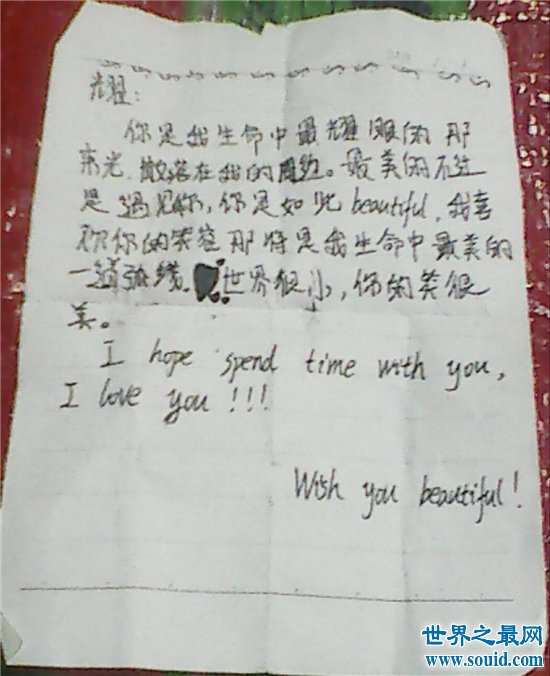 耀:
你是我生命中最耀眼的那
束光,散落在我的周边。最美的不过
是遇见你,你是如此beautiful,我喜
欢你的笑容那将是我生命中最美的
一道弧线。世界很小,你的笑很
美。
I hope spend time with you,
I love you!!!
Wish you beautiful!
世界之最网
www.souid.com